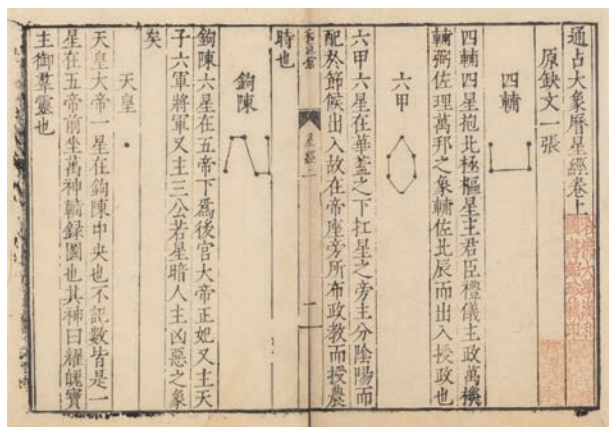 通占大象曆星經卷上
原缺文一張
四輔
四輔四星抱北極樞星主君臣禮儀主政萬機
輔弼佐理萬邦之象輔佐北辰而出入授政也
六甲
六甲六星在華蓋之下扛星之旁主分陰陽而
配於節候出入故在帝座旁所布政教而授農
星經上
一
時也
鉤陳
鉤陳六星在五帝下爲後宮大帝正妃又主天
子六軍將軍又主三公若星暗人主凶惡之象
矣
天皇
天皇大帝一星在鉤陳中央也不記數皆是一
星在五帝前坐萬神輔録圖也其神曰耀魄寶
主御羣靈也